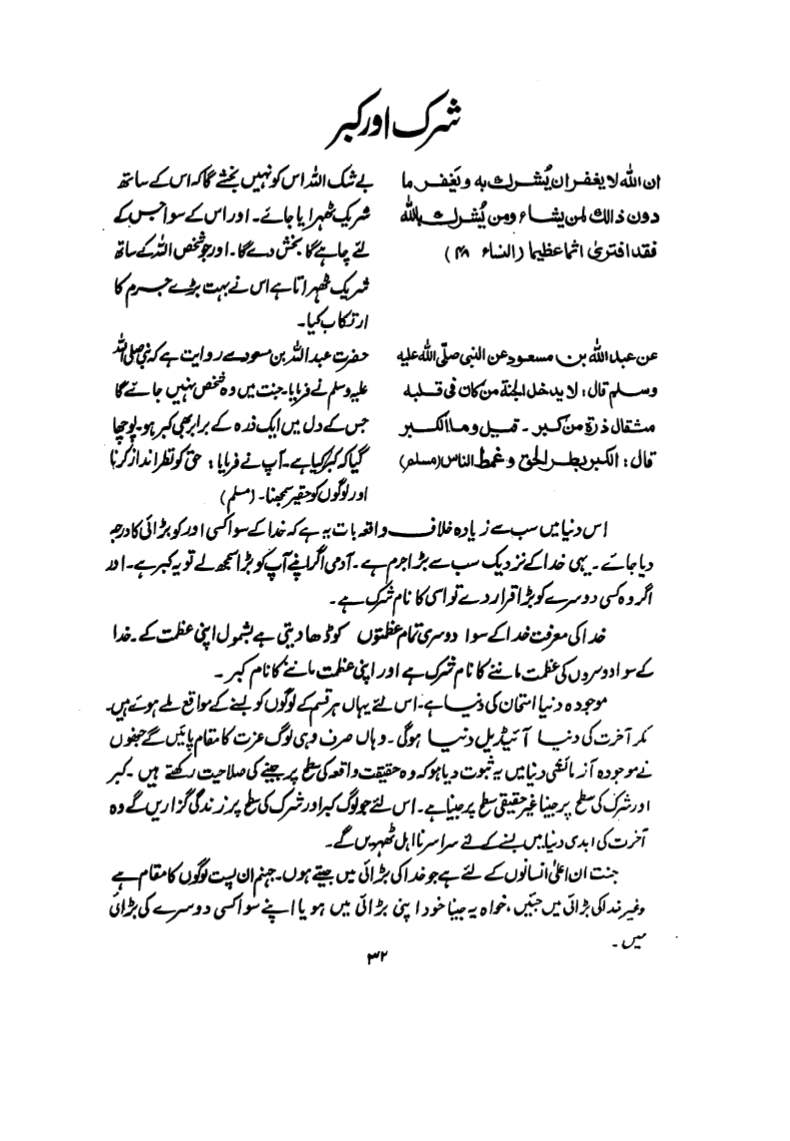 شرک اور کبر
ان الله لا يغفر ان يُشرك به ويَغفر ما
دون ذالك لمن يشاء ومن يُشرك بالله
فقد افترىٰ اثما عظيما (النساء ۴۸)
بے شک اللہ اس کو نہیں بخشے گا کہ اس کے ساتھ
شریک ٹھہرایا جائے۔ اور اس کے سوا جس کے
لئے چاہے گا بخش دے گا۔ اور جو شخص اللہ کے ساتھ
شریک ٹھہراتا ہے اس نے بہت بڑے جرم کا
ارتکاب کیا۔
عن عبد الله بن مسعود عن النبی صلّی الله علیه
وسلم قال: لا يدخل الجنة من كان فى قلبه
مثقال ذرة من كبر۔ قيل وما الكبر
قال: الكبر بطر الحق وغمط الناس (مسلم)
حضرت عبداللہ بن مسعود سے روایت ہے کہ نبی صلی اللہ
علیہ وسلم نے فرمایا۔ جنت میں وہ شخص نہیں جائے گا
جس کے دل میں ایک ذرہ کے برابر بھی کبر ہو۔ پوچھا
گیا کہ کبر کیا ہے۔ آپ نے فرمایا: حق کو نظر انداز کرنا
اور لوگوں کو حقیر سمجھنا۔ (مسلم)
اس دنیا میں سب سے زیادہ خلاف واقعہ بات یہ ہے کہ خدا کے سوا کسی اور کو بڑائی کا درجہ
دیا جائے۔ یہی خدا کے نزدیک سب سے بڑا جرم ہے۔ آدمی اگر اپنے آپ کو بڑا سمجھ لے تو یہ کبر ہے۔ اور
اگر وہ کسی دوسرے کو بڑا قرار دے تو اسی کا نام شرک ہے۔
خدا کی معرفت خدا کے سوا دوسری تمام عظمتوں کو ڈھا دیتی ہے بشمول اپنی عظمت کے۔ خدا
کے سوا دوسروں کی عظمت ماننے کا نام شرک ہے اور اپنی عظمت ماننے کا نام کبر۔
موجودہ دنیا امتحان کی دنیا ہے۔ اس لئے یہاں ہر قسم کے لوگوں کو بسنے کے مواقع ملے ہوئے ہیں۔
مگر آخرت کی دنیا آئیڈیل دنیا ہوگی۔ وہاں صرف وہی لوگ عزت کا مقام پائیں گے جنھوں
نے موجودہ آزمائشی دنیا میں یہ ثبوت دیا ہو کہ وہ حقیقت واقعہ کی سطح پر جینے کی صلاحیت رکھتے ہیں۔ کبر
اور شرک کی سطح پر جینا غیر حقیقی سطح پر جینا ہے۔ اس لئے جو لوگ کبر اور شرک کی سطح پر زندگی گزاریں گے وہ
آخرت کی ابدی دنیا میں بسنے کے لئے سراسر نااہل ٹھہریں گے۔
جنت ان اعلیٰ انسانوں کے لئے ہے جو خدا کی بڑائی میں جیتے ہوں۔ جہنم ان پست لوگوں کا مقام ہے
جو غیر خدا کی بڑائی میں جئیں، خواہ یہ جینا خود اپنی بڑائی میں ہو یا اپنے سوا کسی دوسرے کی بڑائی
میں۔
۳۲